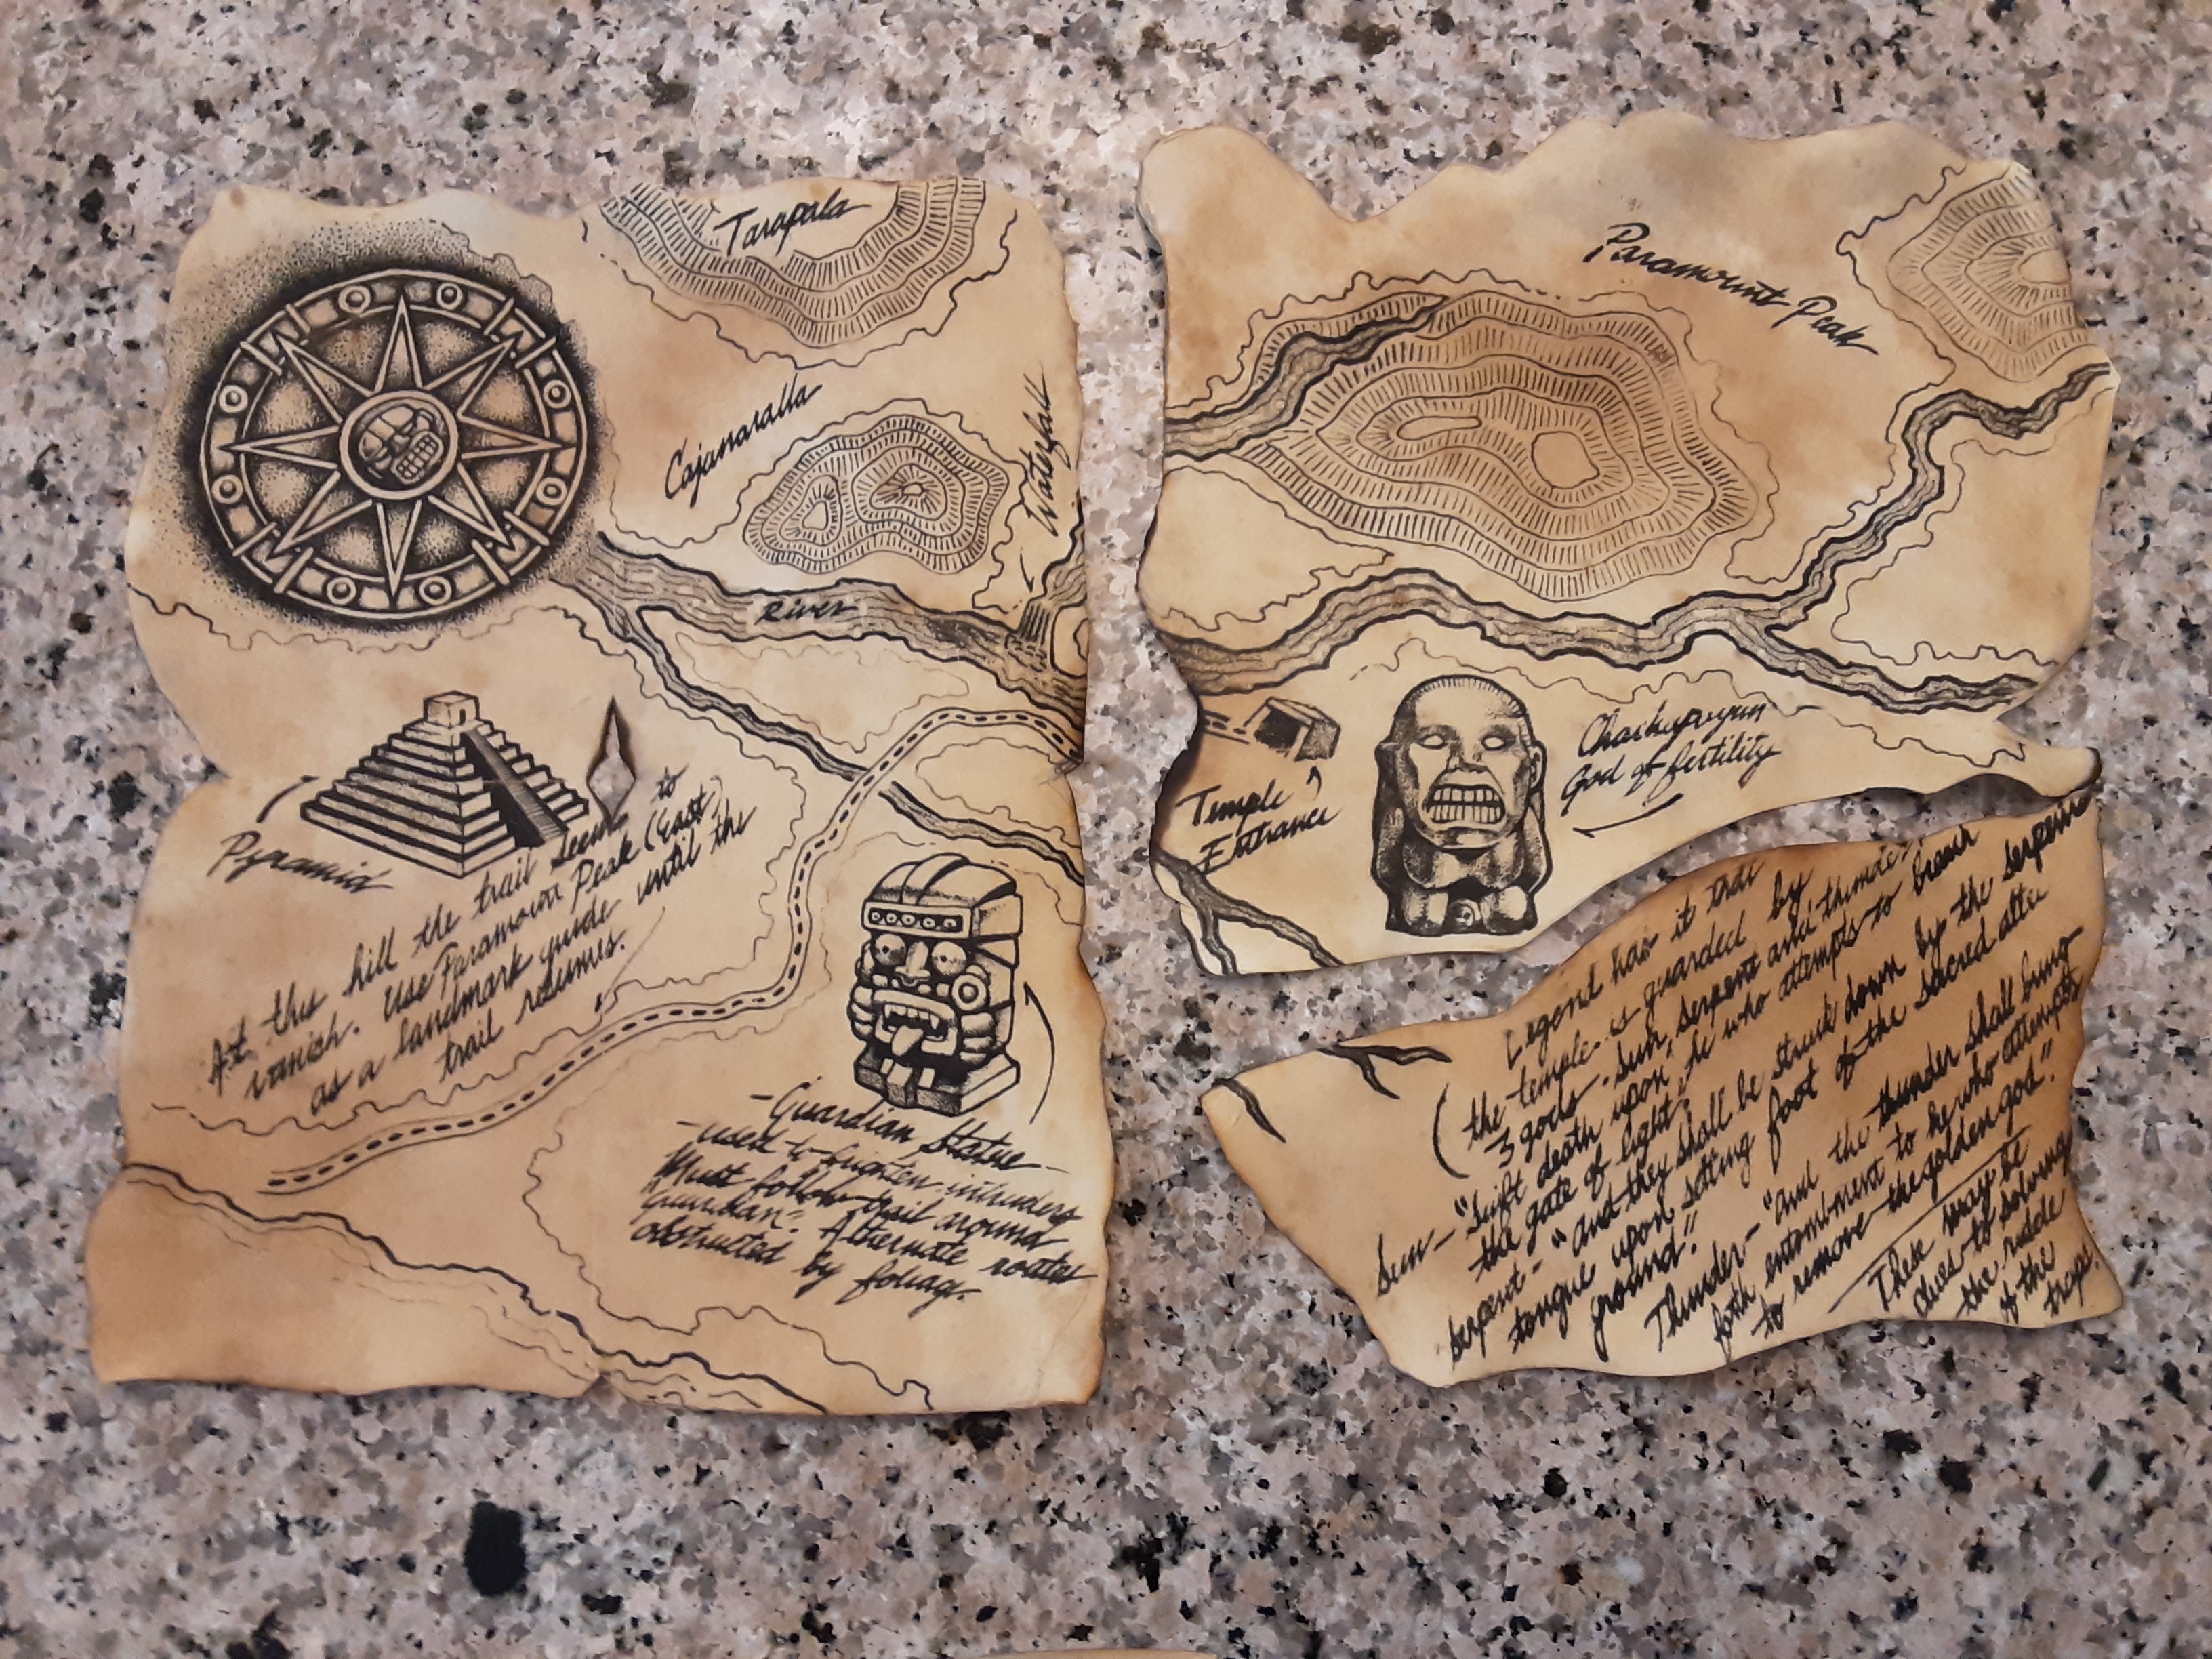 Tarapala
Cajamaralla
Waterfall
River
Pyramid
At this hill the trail seems to
vanish. Use Paramount Peak (East)
as a landmark guide until the
trail resumes.
-Guardian Statue-
-used to frighten intruders
Must follow trail around
"Guardian". Alternate routes
obstructed by foliage.
Paramount Peak
Temple
Entrance
God of fertility
Legend has it that
the temple is guarded by
3 gods. Sun, serpent and thunder.
Sun- "Swift death upon he who attempts to breach
the gate of light"
serpent- "and they shall be struck down by the serpent's
tongue upon setting foot of the sacred altar
ground."
Thunder- "and the thunder shall bring
forth entombment to he who attempts
to remove the golden god."
These may be
clues to solving
the riddle
of the
traps.